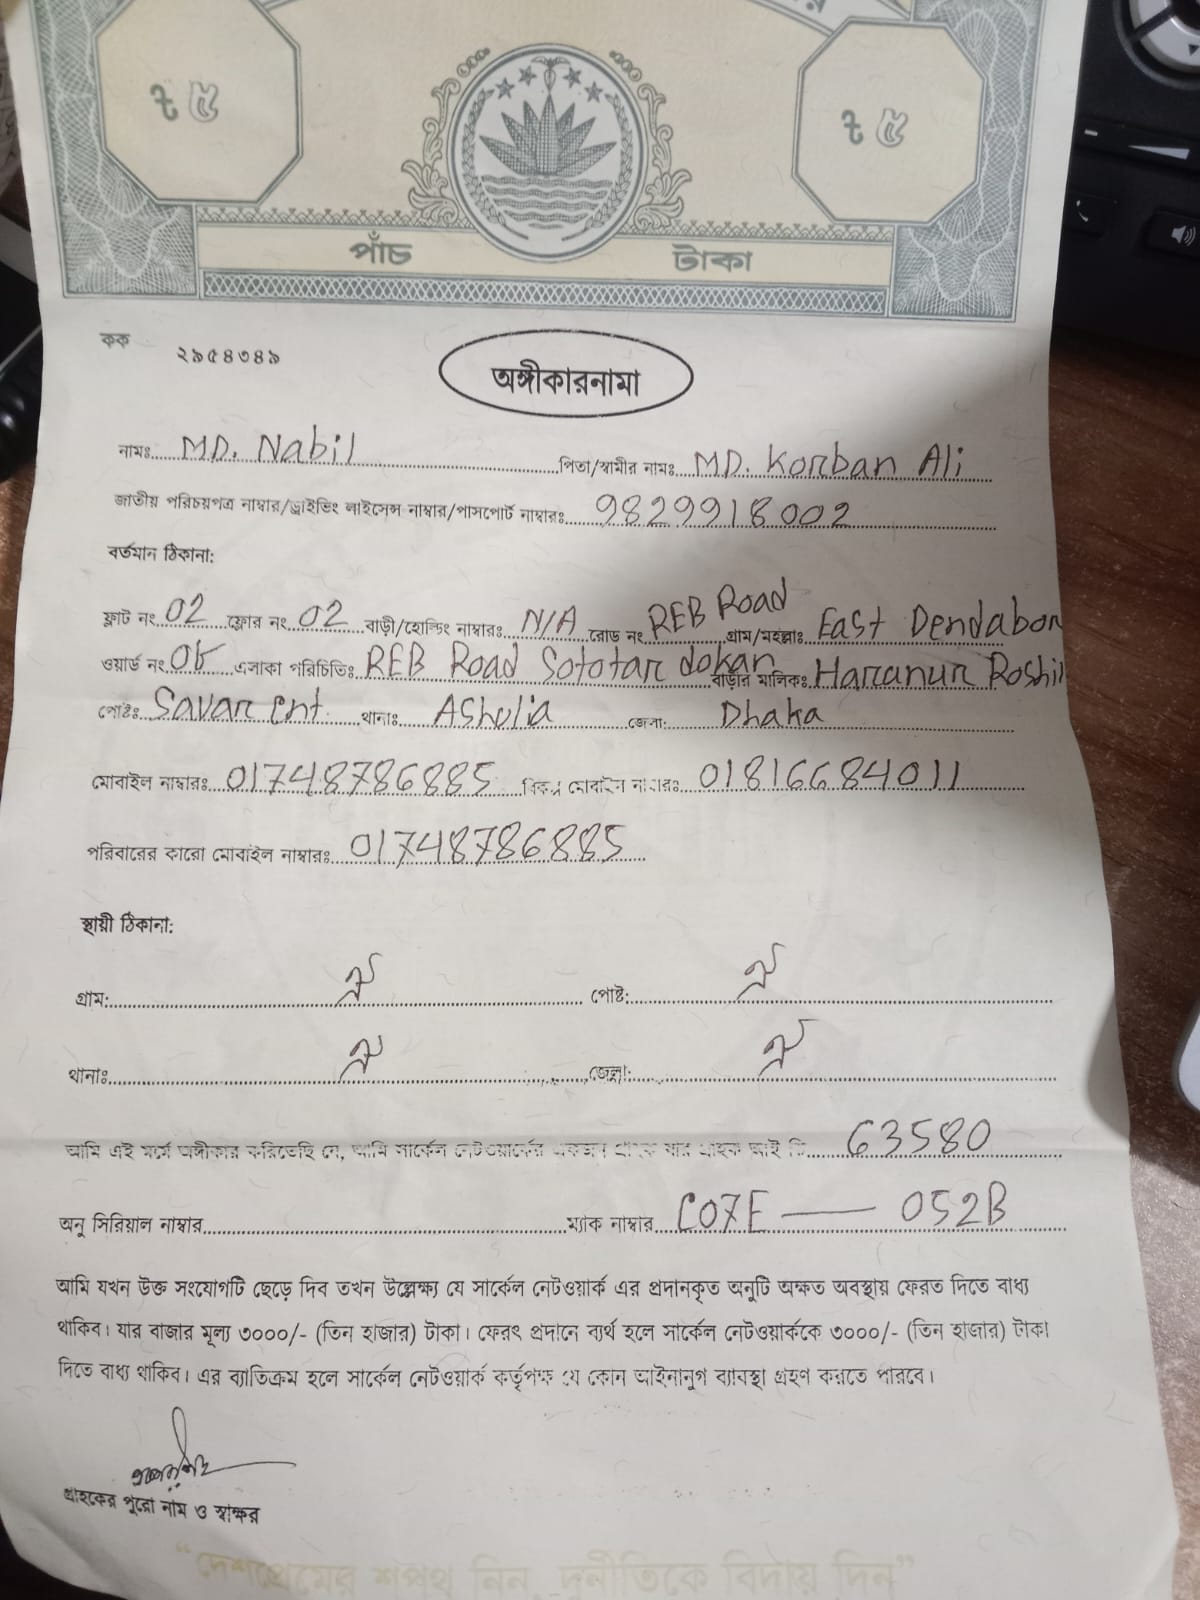 ৳ ৫
৳ ৫
পাঁচ টাকা
কক ২৯৫৪৩৪৯
অঙ্গীকারনামা
নামঃ MD. Nabil পিতা/স্বামীর নামঃ MD. Korban Ali
জাতীয় পরিচয়পত্র নাম্বার/ড্রাইভিং লাইসেন্স নাম্বার/পাসপোর্ট নাম্বারঃ 9829918002
বর্তমান ঠিকানা:
ফ্লাট নং 02 ফ্লোর নং 02 বাড়ী/হোল্ডিং নাম্বারঃ N/A রোড নং REB Road গ্রাম/মহল্লাঃ East Dendabor
ওয়ার্ড নং এলাকা পরিচিতিঃ REB Road Sototar dokan বাড়ীর মালিকঃ Haranur Roshi
পোষ্টঃ Savar Cnt. থানাঃ Ashulia জেলা: Dhaka
মোবাইল নাম্বারঃ 01748786885 বিকল্প মোবাইল নাম্বারঃ 01816684011
পরিবারের কারো মোবাইল নাম্বারঃ 01748786885
স্থায়ী ঠিকানা:
গ্রাম: ঐ পোষ্ট: ঐ
থানাঃ ঐ জেলা: ঐ
আমি এই মর্মে অঙ্গীকার করিতেছি যে, আমি সার্কেল নেটওয়ার্কের একজন গ্রাহক যার গ্রাহক আই ডি 63580
অনু সিরিয়াল নাম্বার ম্যাক নাম্বার C07E — 052B
আমি যখন উক্ত সংযোগটি ছেড়ে দিব তখন উল্লেক্ষ্য যে সার্কেল নেটওয়ার্ক এর প্রদানকৃত অনুটি অক্ষত অবস্থায় ফেরত দিতে বাধ্য
থাকিব। যার বাজার মূল্য ৩০০০/- (তিন হাজার) টাকা। ফেরৎ প্রদানে ব্যর্থ হলে সার্কেল নেটওয়ার্ককে ৩০০০/- (তিন হাজার) টাকা
দিতে বাধ্য থাকিব। এর ব্যাতিক্রম হলে সার্কেল নেটওয়ার্ক কর্তৃপক্ষ যে কোন আইনানুগ ব্যাবস্থা গ্রহণ করতে পারবে।
গ্রাহকের পুরো নাম ও স্বাক্ষর
“দেশপ্রেমের শপথ নিন, দুর্নীতিকে বিদায় দিন”